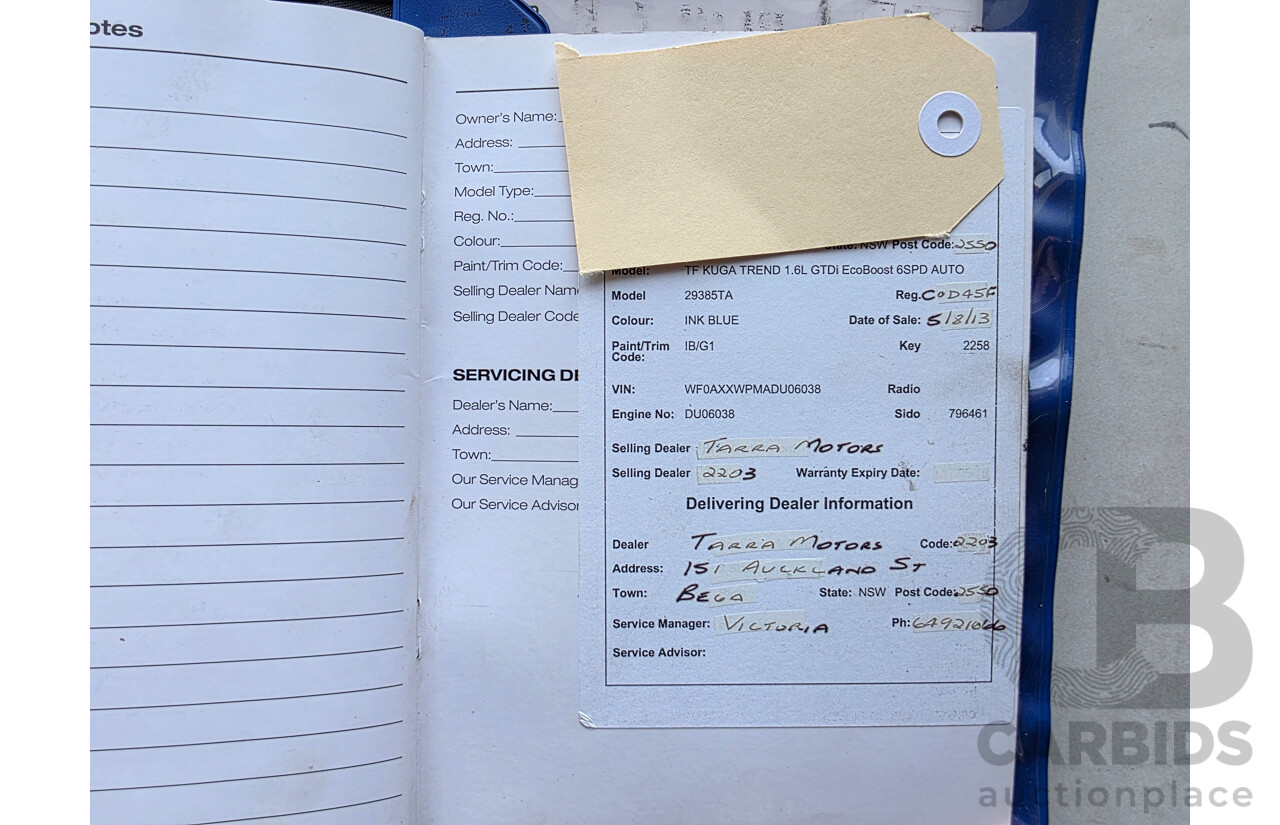 otes
Owner's Name:
Address:
Town:
Model Type:
Reg. No.:
Colour:
Paint/Trim Code:
Selling Dealer Nam
Selling Dealer Code
SERVICING DE
Dealer's Name:
Address:
Town:
Our Service Manag
Our Service Advisor
State: NSW Post Code: 2550
Model: TF KUGA TREND 1.6L GTDi EcoBoost 6SPD AUTO
Model 29385TA Reg. COD45F
Colour: INK BLUE Date of Sale: 5/8/13
Paint/Trim Code: IB/G1 Key 2258
VIN: WF0AXXWPMADU06038 Radio
Engine No: DU06038 Sido 796461
Selling Dealer TARRA MOTORS
Selling Dealer 2203 Warranty Expiry Date:
Delivering Dealer Information
Dealer TARRA MOTORS Code: 2203
Address: 151 AUCKLAND ST
Town: BEGA State: NSW Post Code: 2550
Service Manager: VICTORIA Ph: 64921066
Service Advisor:
CARBIDS
auctionplace